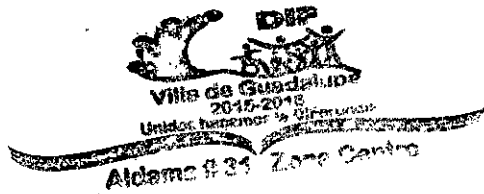 DIP
Villa de Guadalupe
2015-2018
Unidos hacemos la Diferencia
Aldama # 31 Zona Centro